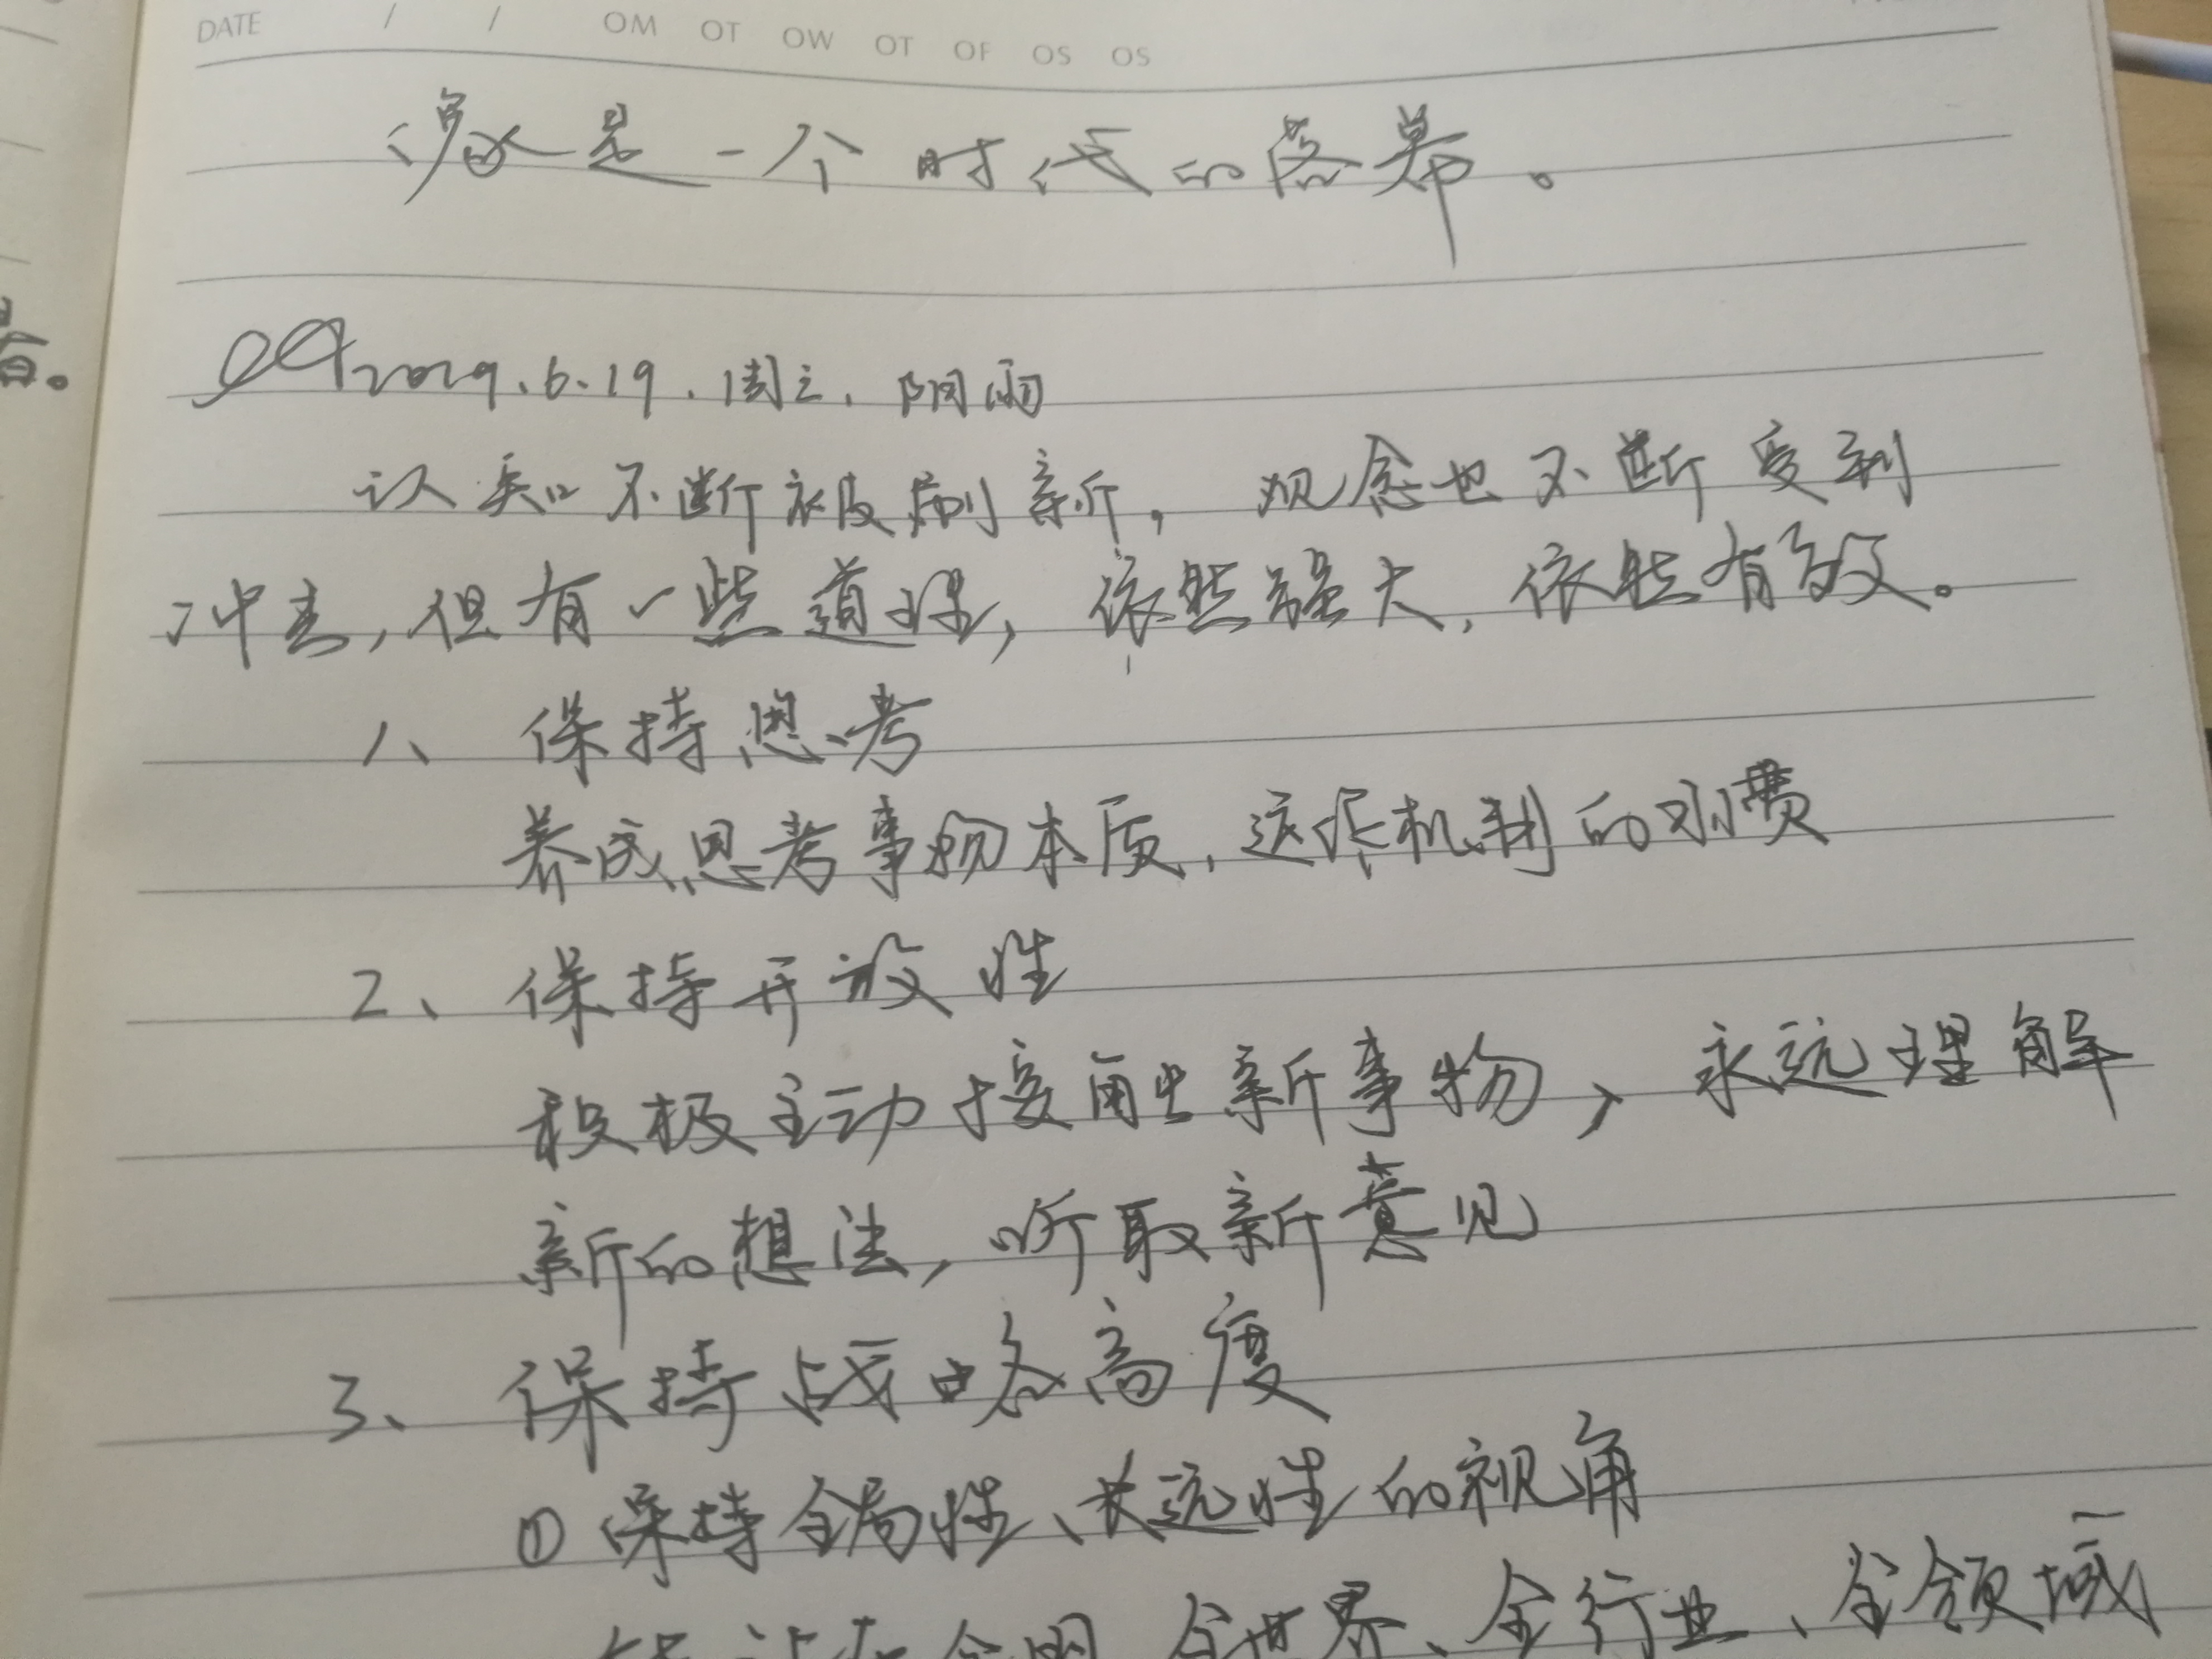 DATE / / OM OT OW OT OF OS OS
是一个时代的落幕。
2019.6.19.周三.阴雨
认知不断被刷新，观念也不断受到
冲击，但有一些道理，依然强大，依然有效。
1、保持思考
养成思考事物本质，运作机制的习惯
2、保持开放性
积极主动接触新事物，永远理解
新的想法，听取新意见
3、保持战略高度
①保持全局性、长远性的视角
全世界、全行业、全领域